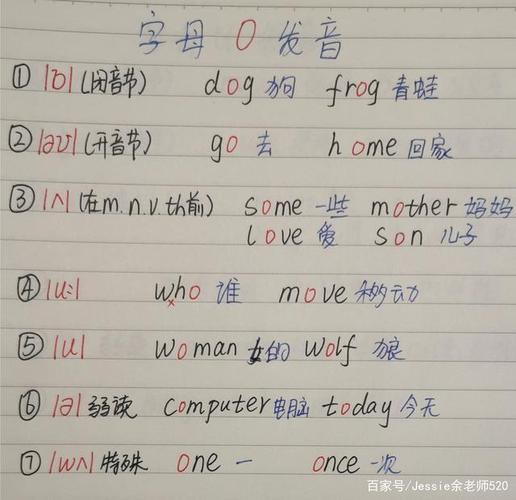 字母 O 发音
① |ɒ| (闭音节) dog 狗 frog 青蛙
② |əʊ| (开音节) go 去 home 回家
③ |ʌ| (在m.n.v.th前) some 一些 mother 妈妈
love 爱 son 儿子
④ |u:| who 谁 move 移动
⑤ |u| woman 女的 wolf 狼
⑥ |ə| 弱读 computer 电脑 today 今天
⑦ |wʌ| 特殊 one 一 once 一次
百家号/Jessie余老师520